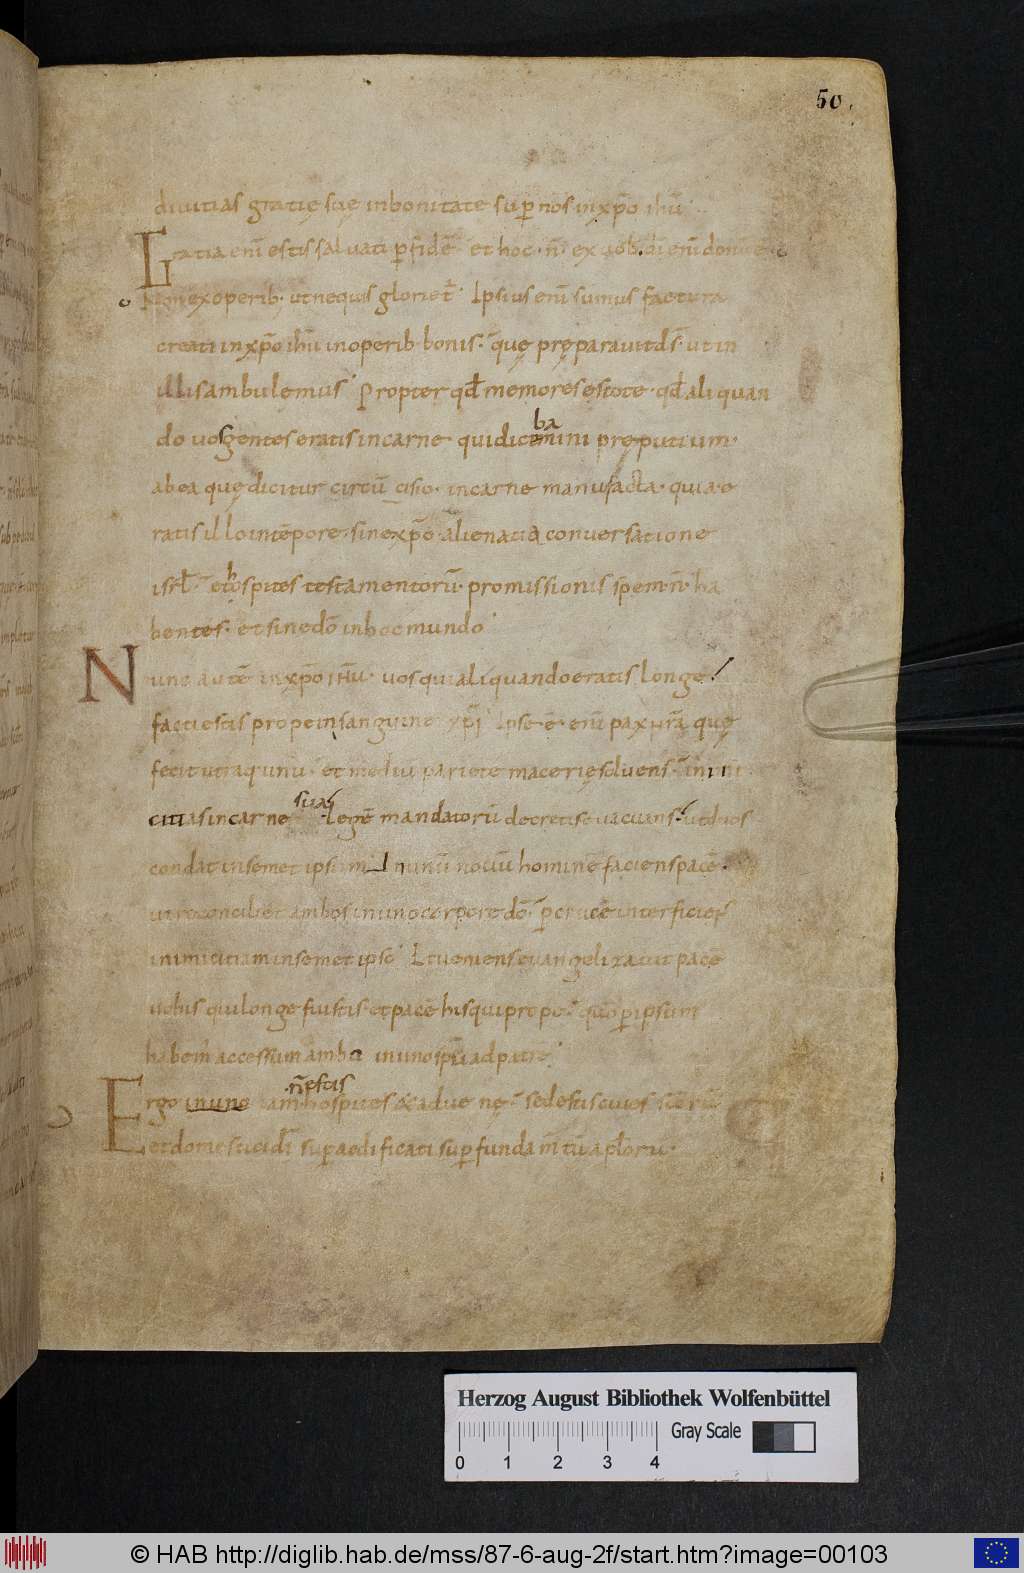 50.
diuitias gratię suę inbonitate sup nos inxpo ihu
Gratia eni estis saluati p fide et hoc n ex uob. di eni donu e
Non exoperib. ut nequis gloriet. Ipsius eni sumus factura
creati inxpo ihu inoperib bonis. quę pręparauit ds. ut in
illis ambulemus Propter qd memores estote qd aliquan
do uos gentes eratis incarne quidicemini pręputium.
ba
abea quę dicitur circu cisio. incarne manufacta. quia e
ratis illo intepore. sinexpo alienatia conuersatione
isrl. et hospites testamentoru. promissionis spem n ha
bentes. et sinedo inhoc mundo
Nunc aute inxpo ihu. uos qui aliquando eratis longe
facti estis prope insanguine xpi Ipse e eni pax nra que
fecit utraq unu. et mediu pariete macerię soluens. inimi
citias incarne sua. lege mandatoru decretis euacuans. ut duos
condat insemet ipsum In unu nouu homine faciens pace.
ut reconciliet ambos inuno corpore do. p cruce interficiens
inimicitiam insemet ipso Et ueniens euangelizauit pace
uobis quilonge fuistis. et pace his qui prope. qm p ipsum
habem accessum ambo inuno spu ad patre
n estis
Ergo inuno iam hospites & aduenę. sed estis ciues scoru
et domestici di supaedificati sup fundamtu aploru.
Herzog August Bibliothek Wolfenbüttel
Gray Scale
0 1 2 3 4
© HAB http://diglib.hab.de/mss/87-6-aug-2f/start.htm?image=00103